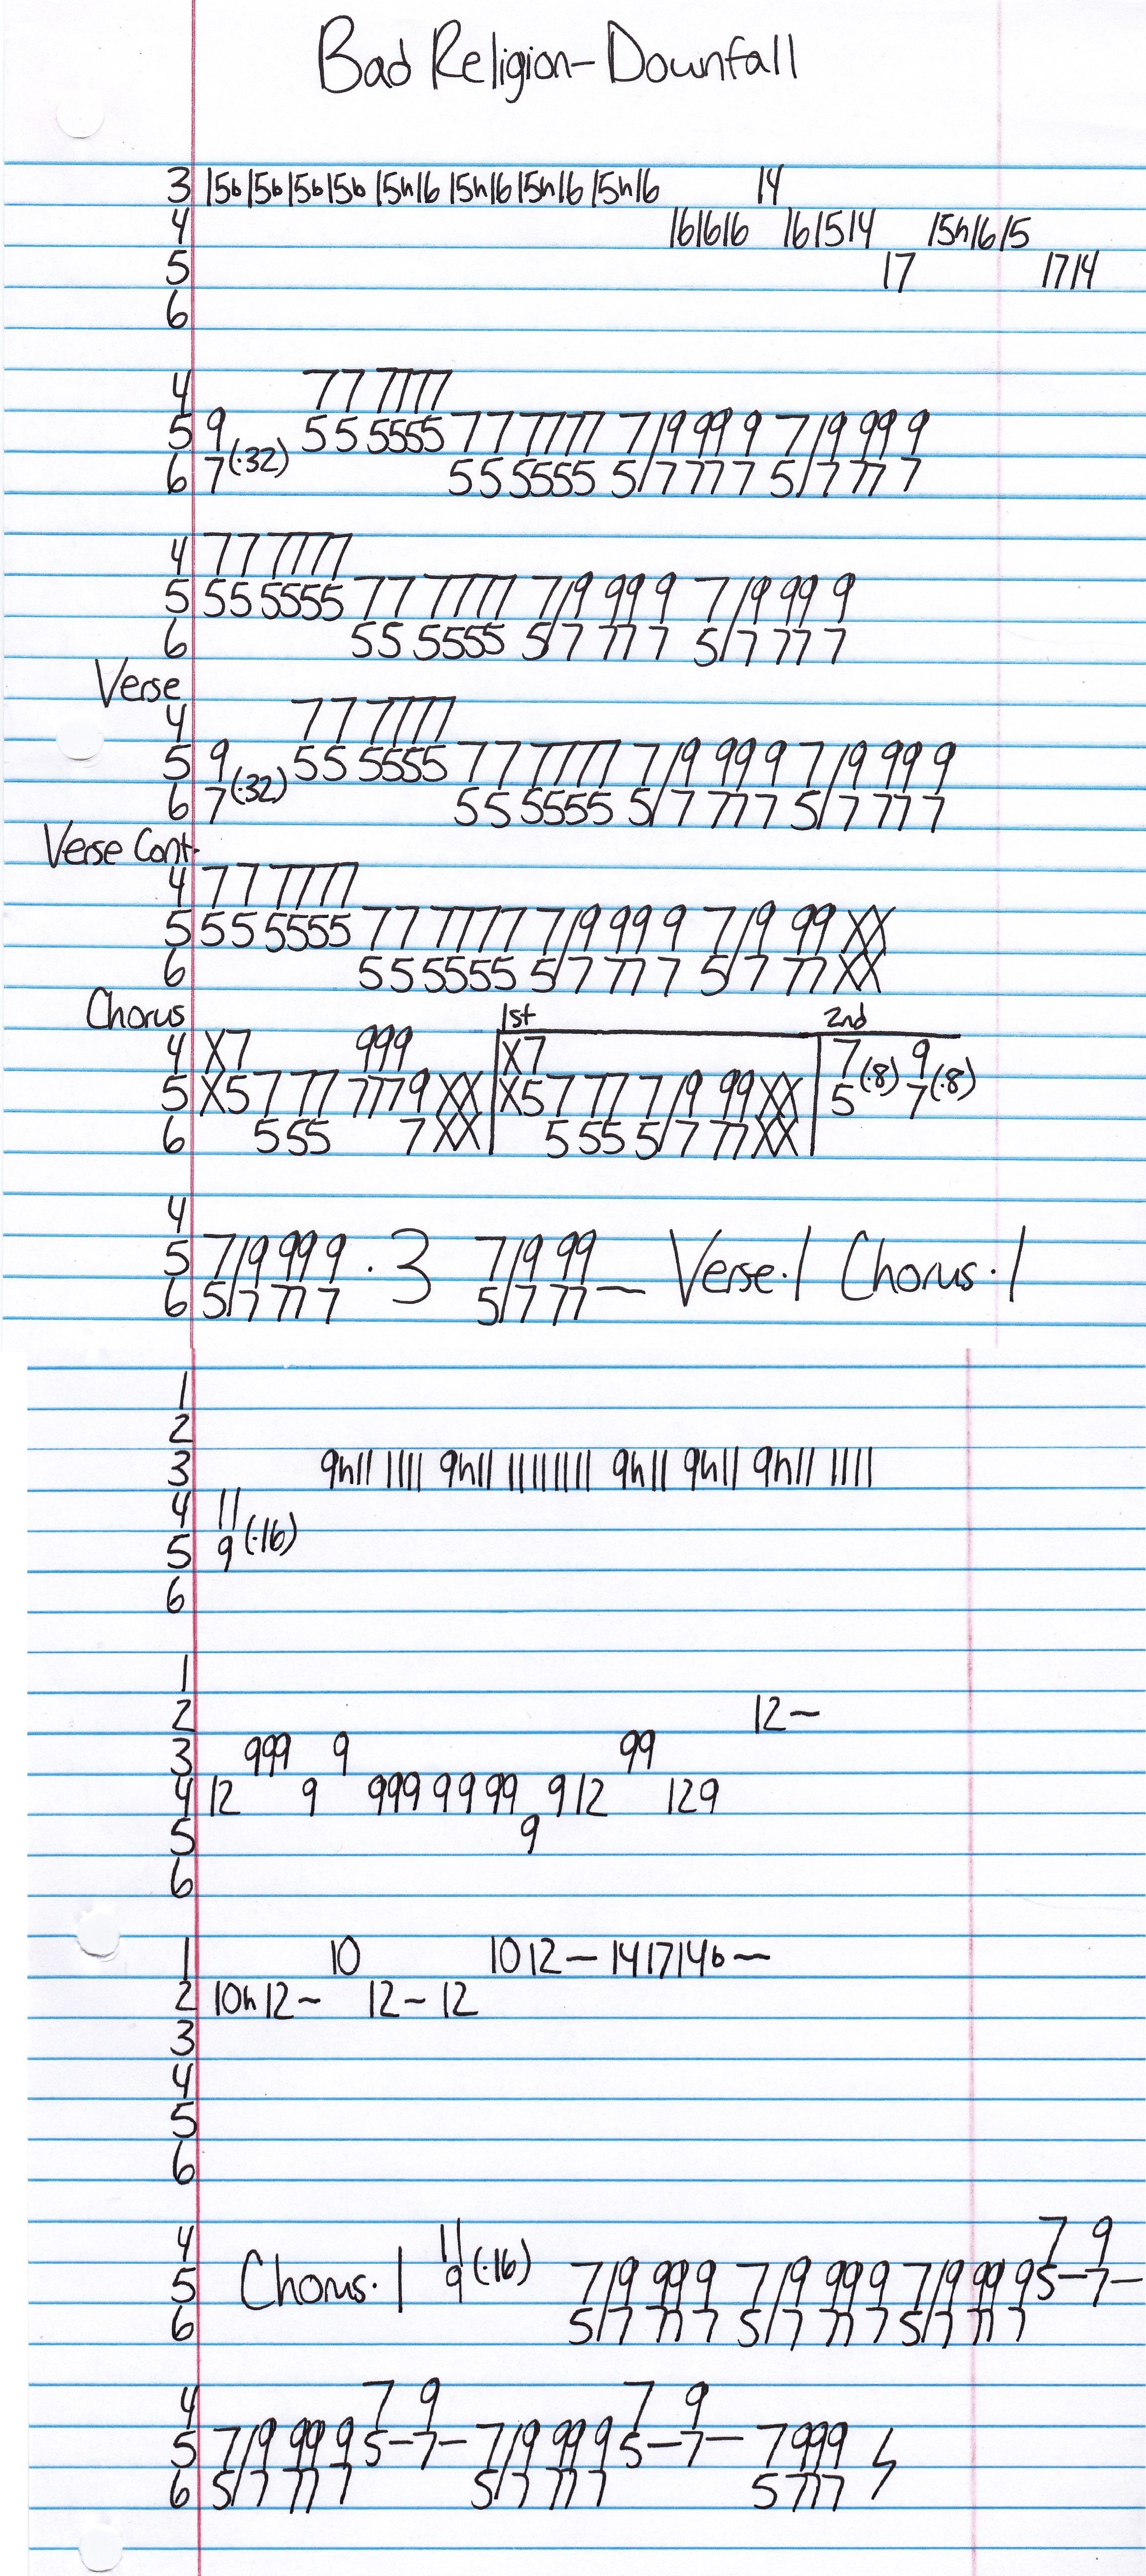 Bad Religion - Downfall
3 15b 15b 15b 15b 15h16 15h16 15h16 15h16 14
4 161616 161514 15h1615
5 17 1714
6
4 77 7777
5 9 55 5555 77 7777 7/9 99 9 7/9 99 9
6 7 (·32) 55 5555 5/7 77 7 5/7 77 7
4 77 7777
5 55 5555 77 7777 7/9 99 9 7/9 99 9
6 55 5555 5/7 77 7 5/7 77 7
Verse
4 77 7777
5 9 55 5555 77 7777 7/9 99 9 7/9 99 9
6 7 (·32) 55 5555 5/7 77 7 5/7 77 7
Verse Cont.
4 77 7777
5 55 5555 77 7777 7/9 99 9 7/9 99 XX
6 55 5555 5/7 77 7 5/7 77 XX
Chorus 1st 2nd
4 X7 999 X7 7 (·8) 9 (·8)
5 X5 7 77 7779 XX X5 7 77 7/9 99 XX 5 7
6 5 55 7 XX 5 55 5/7 77 XX
4
5 7/9 99 9 · 3 7/9 99 ~ Verse · 1 Chorus · 1
6 5/7 77 7 5/7 77
1
2
3 9h11 1111 9h11 11111111 9h11 9h11 9h11 1111
4 11
5 9 (·16)
6
1
2 12~
3 999 9 99
4 12 9 999 9 9 99 9 12 129
5 9
6
1 10 10 12 ~ 14 17 14b ~
2 10h12~ 12 ~ 12
3
4
5
6
4 11 7 9
5 Chorus · 1 9 (·16) 7/9 99 9 7/9 99 9 7/9 99 9 5-7-
6 5/7 77 7 5/7 77 7 5/7 77 7
4 7 9 7 9
5 7/9 99 9 5-7- 7/9 99 9 5-7- 7999
6 5/7 77 7 5/7 77 7 5777